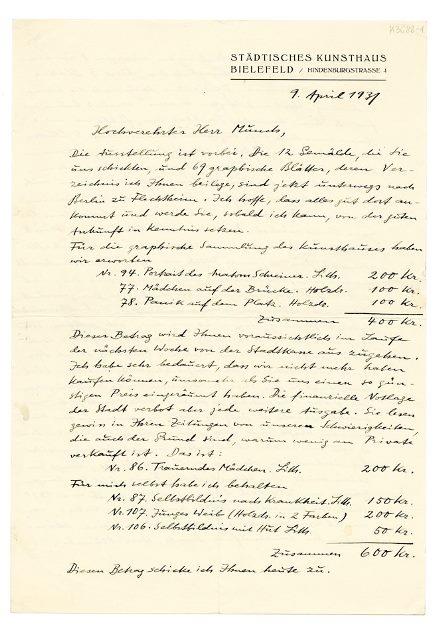 STÄDTISCHES KUNSTHAUS
BIELEFELD / HINDENBURGSTRASSE 4
9. April 1931
Hochverehrter Herr Munch,
Die Ausstellung ist vorbei. Die 12 Gemälde, die Sie
uns schickten, und 69 graphische Blätter, deren Ver-
zeichnis ich Ihnen beilege, sind jetzt unterwegs nach
Berlin zu Flechtheim. Ich hoffe, dass alles gut dort an-
kommt und werde Sie, sobald ich kann, von der guten
Ankunft in Kenntnis setzen.
Für die graphische Sammlung des Kunsthauses haben
wir erworben
Nr. 94. Portrait des Inatom Schreiner. Lith. 200 Kr.
77. Mädchen auf der Brücke. Holzds. 100 Kr.
78. Panik auf dem Platz. Holzds. 100 Kr.
Zusammen 400 Kr.
Dieser Betrag wird Ihnen voraussichtlich im Laufe
der nächsten Woche von der Stadtkasse aus zugehen.
Ich habe sehr bedauert, dass wir nicht mehr haben
kaufen können, umsomehr als Sie uns einen so gün-
stigen Preis eingeräumt haben. Die finanzielle Notlage
der Stadt verbot aber jede weitere Ausgabe. Sie lesen
gewiss in Ihren Zeitungen von unseren Schwierigkeiten,
die auch der Grund sind, warum wenig an Private
verkauft ist. Das ist:
Nr. 86. Trauerndes Mädchen. Lith. 200 Kr.
Für mich selbst habe ich behalten
Nr. 87. Selbstbildnis nach Krankheit. Lith. 150 Kr.
Nr. 107. Junges Weib (Holzds. in 2 Farben) 200 Kr.
Nr. 106. Selbstbildnis mit Hut. Lith. 50 Kr.
Zusammen 600 Kr.
Diesen Betrag schicke ich Ihnen heute zu.